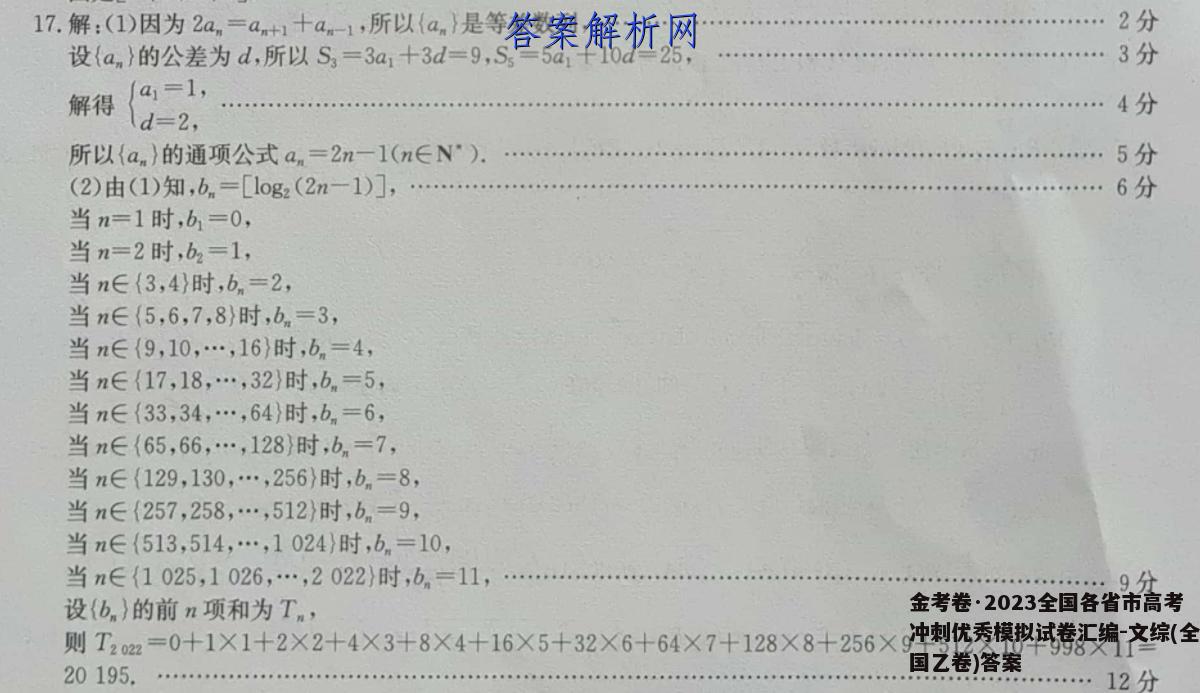 17. 解:(1)因为 2aₙ=aₙ₊₁+aₙ₋₁,所以{aₙ}是等 …… 2分
答案解析网
设{aₙ}的公差为 d,所以 S₃=3a₁+3d=9,S₅=5a₁+10d=25, …… 3分
解得 {a₁=1,
d=2, …… 4分
所以{aₙ}的通项公式 aₙ=2n−1(n∈N*). …… 5分
(2)由(1)知,bₙ=[log₂(2n−1)], …… 6分
当 n=1 时,b₁=0,
当 n=2 时,b₂=1,
当 n∈{3,4}时,bₙ=2,
当 n∈{5,6,7,8}时,bₙ=3,
当 n∈{9,10,…,16}时,bₙ=4,
当 n∈{17,18,…,32}时,bₙ=5,
当 n∈{33,34,…,64}时,bₙ=6,
当 n∈{65,66,…,128}时,bₙ=7,
当 n∈{129,130,…,256}时,bₙ=8,
当 n∈{257,258,…,512}时,bₙ=9,
当 n∈{513,514,…,1 024}时,bₙ=10,
当 n∈{1 025,1 026,…,2 022}时,bₙ=11, …… 9分
设{bₙ}的前 n 项和为 Tₙ,
则 T₂ ₀₂₂=0+1×1+2×2+4×3+8×4+16×5+32×6+64×7+128×8+256×9+512×10+998×11=
20 195. …… 12分
金考卷·2023全国各省市高考
冲刺优秀模拟试卷汇编-文综(全
国乙卷)答案